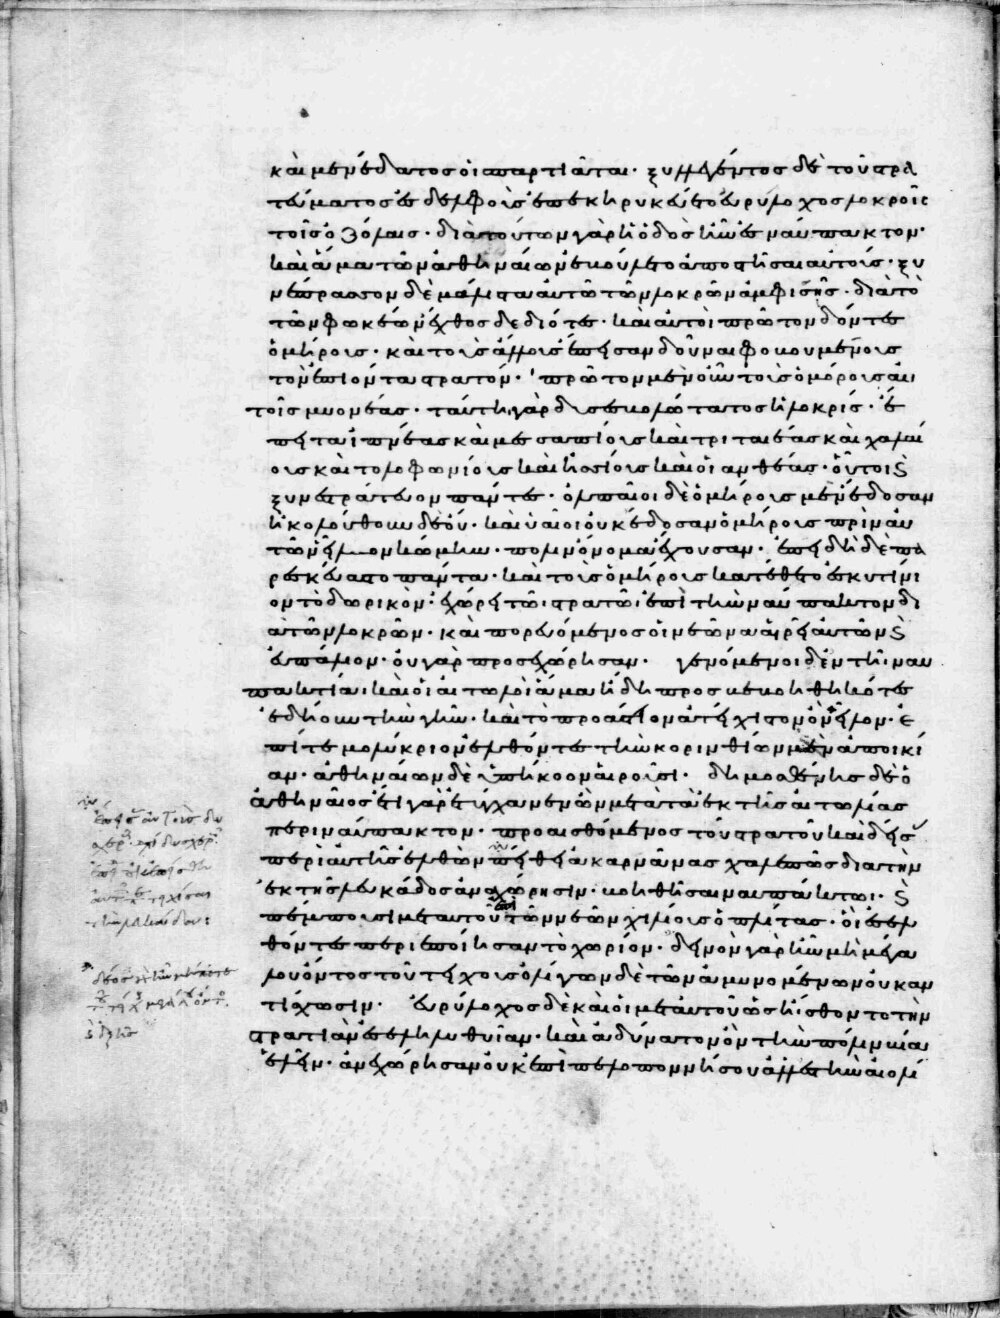 καὶ μενέδαϊος οἱ σπαρτιᾶται· ξυλλεγέντος δὲ τοῦ στρα
τεύματος ἐς δελφοὺς ἐπεκηρυκεύετο εὐρύλοχος λοκροῖς
τοῖς ὀζόλαις· διὰ τούτων γὰρ ἡ ὁδὸς ἦν ἐς ναύπακτον·
καὶ ἅμα τῶν ἀθηναίων ἐβούλετο ἀποστῆσαι αὐτούς· ξυ
νέπρασσον δὲ μάλιστα αὐτῶ τῶν λοκρῶν ἀμφισῆς· διὰ τὸ
τῶν φωκέων ἔχθος δεδιότες· καὶ αὐτοὶ πρῶτον δόντες
ὁμήρους· καὶ τοὺς ἄλλους ἔπεισαν δοῦναι φοβουμένους
τὸν ἐπιόντα στρατόν· πρῶτον μὲν οὖν τοὺς ὁμόρους αὐ
τοῖς μυονέας· ταύτη γὰρ δυσεσβολώτατος ἡ λοκρίς· ἔ
πειτα ἰπνέας καὶ μεσαπίους καὶ τριταιέας καὶ χαλαί
ους καὶ τολοφωνίους καὶ ἡσίους καὶ οἰανθέας· οὗτοι καὶ
ξυνεστράτευον πάντες· ὀλπαῖοι δὲ ὁμήρους μὲν ἔδοσαν
ἠκολούθουν δὲ οὔ· καὶ ὑαῖοι οὐκ ἔδοσαν ὁμήρους πρὶν αὐ
τῶν εἷλον κώμην· πόλιν ὄνομα ἔχουσαν· ἐπειδὴ δὲ πα
ρεσκεύαστο πάντα· καὶ τοὺς ὁμήρους κατέθετο ἐς κυτίνι
ον τὸ δωρικόν· ἐχώρει τῶ στρατῶ ἐπὶ τὴν ναύπακτον δι
ὰ τῶν λοκρῶν· καὶ πορευόμενος οἰνεῶνα αἱρεῖ αὐτῶν καὶ
εὐπάλιον· οὐ γὰρ προσεχώρησαν· γενόμενοι δ' ἐν τῆ ναυ
πακτία· καὶ οἱ αἰτωλοὶ ἅμα ἤδη προσβεβοηθηκότες
ἐδήουν τὴν γῆν· καὶ τὸ προάστειον ἀτείχιστον ὂν εἷλον· ἐ
πί τε μολύκριον ἐλθόντες τὴν κορινθίων μὲν ἀποικί
αν· ἀθηναίων δὲ ὑπήκοον αἱροῦσι· δημοσθένης δὲ ὁ
ἀθηναῖος ἔτι γὰρ ἐτύγχανεν ὢν μετὰ τὰ ἐκ τῆς αἰτωλίας
περὶ ναύπακτον· προαισθόμενος τοῦ στρατοῦ καὶ δείσας
περὶ αὐτῆς ἐλθὼν πείθει ἀκαρνᾶνας χαλεπῶς διὰ τὴν
ἐκ τῆς λευκάδος ἀναχώρησιν· βοηθῆσαι ναυπάκτω· καὶ
πέμπουσι μετ' αὐτοῦ ἐπὶ τῶν νεῶν χιλίους ὁπλίτας· οἳ ἐσελ
θόντες περιεποίησαν τὸ χωρίον· δεινὸν γὰρ ἦν μὴ μεγά
λου ὄντος τοῦ τείχους ὀλίγων δὲ τῶν ἀμυνομένων οὐκ ἀν
τίσχωσιν· εὐρύλοχος δὲ καὶ οἱ μετ' αὐτοῦ ὡς ἤσθοντο τὴν
στρατιὰν ἐσεληλυθυῖαν· καὶ ἀδύνατον ὂν τὴν πόλιν βία
ἑλεῖν· ἀνεχώρησαν οὐκ ἐπὶ πελοποννήσου ἀλλ' ἐς τὴν αἰολί